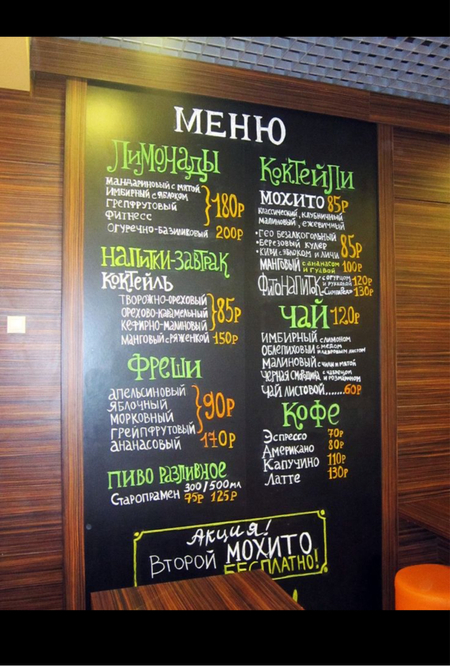 МЕНЮ
ЛИМОНАДЫ
МАНДАРИНОВЫЙ С МЯТОЙ
ИМБИРНЫЙ С ЯБЛОКОМ
ГРЕПФРУТОВЫЙ
ФИТНЕСС
180Р
ОГУРЕЧНО-БАЗИЛИКОВЫЙ 200Р
НАПИТКИ-ЗАВТРАК
КОКТЕЙЛЬ
ТВОРОЖНО-ОРЕХОВЫЙ
ОРЕХОВО-КАРАМЕЛЬНЫЙ
КЕФИРНО-МАЛИНОВЫЙ
85Р
МАНГОВЫЙ С РЯЖЕНКОЙ 150Р
ФРЕШИ
АПЕЛЬСИНОВЫЙ
ЯБЛОЧНЫЙ
МОРКОВНЫЙ
ГРЕЙПФРУТОВЫЙ
90Р
АНАНАСОВЫЙ 170Р
ПИВО РАЗЛИВНОЕ
300/500МЛ
СТАРОПРАМЕН 75Р 125Р
КОКТЕЙЛИ
МОХИТО 85Р
КЛАССИЧЕСКИЙ, КЛУБНИЧНЫЙ
МАЛИНОВЫЙ, ЕЖЕВИЧНЫЙ
• ГЕО БЕЗАЛКОГОЛЬНЫЙ
• БЕРЕЗОВЫЙ КУЛЕР
• КИВИ С ЯБЛОКОМ И ЛИЧИ
85Р
МАНГОВЫЙ С АНАНАСОМ И ГУАВОЙ 100Р
ФИТОНАПИТОК С ОГУРЦОМ 120Р
130Р
ЧАЙ 120Р
ИМБИРНЫЙ С ЛИМОНОМ
ОБЛЕПИХОВЫЙ С МЕДОМ
МАЛИНОВЫЙ С ЧИЛИ И МЯТОЙ
ЧЕРНАЯ СМОРОДИНА С ЧАБРЕЦОМ И РОЗМАРИНОМ
ЧАЙ ЛИСТОВОЙ.......60Р
КОФЕ
ЭСПРЕССО 70Р
АМЕРИКАНО 80Р
КАПУЧИНО 110Р
ЛАТТЕ 130Р
АКЦИЯ!
ВТОРОЙ МОХИТО
БЕСПЛАТНО!